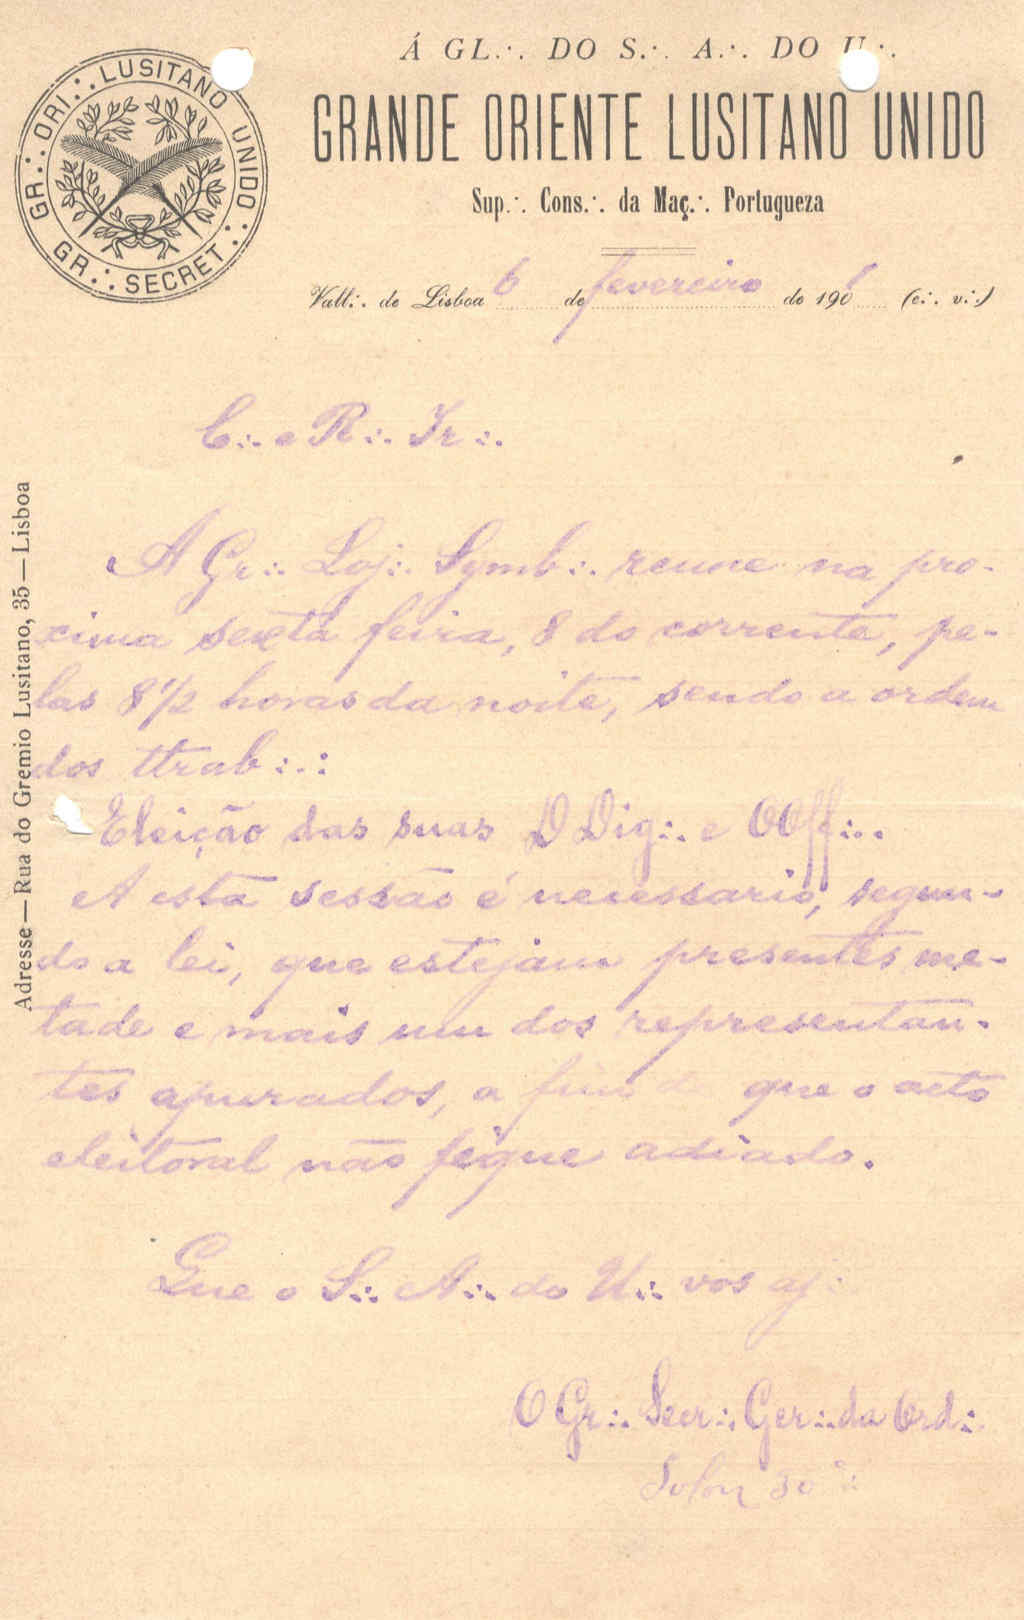 Á GL∴ DO S∴ A∴ DO U∴
GRANDE ORIENTE LUSITANO UNIDO
Sup∴ Cons∴ da Maç∴ Portugueza
GR∴ ORI∴ LUSITANO UNIDO∴
GR∴ SECRET∴
Vall∴ de Lisboa 6 de fevereiro de 1901 (e∴ v∴)
Adresse — Rua do Gremio Lusitano, 35 — Lisboa
C∴ e R∴ Ir∴
A Gr∴ Loj∴ Symb∴ reune na pro-
xima sexta feira, 8 do corrente, pe-
las 8 1/2 horas da noite, sendo a ordem
dos ttrab∴:
Eleição das suas DDig∴ e OOff∴
A esta sessão é necessario, segun-
do a lei, que estejam presentes me-
tade e mais um dos representan-
tes apurados, a fim de que o acto
eleitoral não fique adiado.
Que o S∴ A∴ do U∴ vos aj∴
O Gr∴ Secr∴ Ger∴ da Ord∴
Solon 30∴